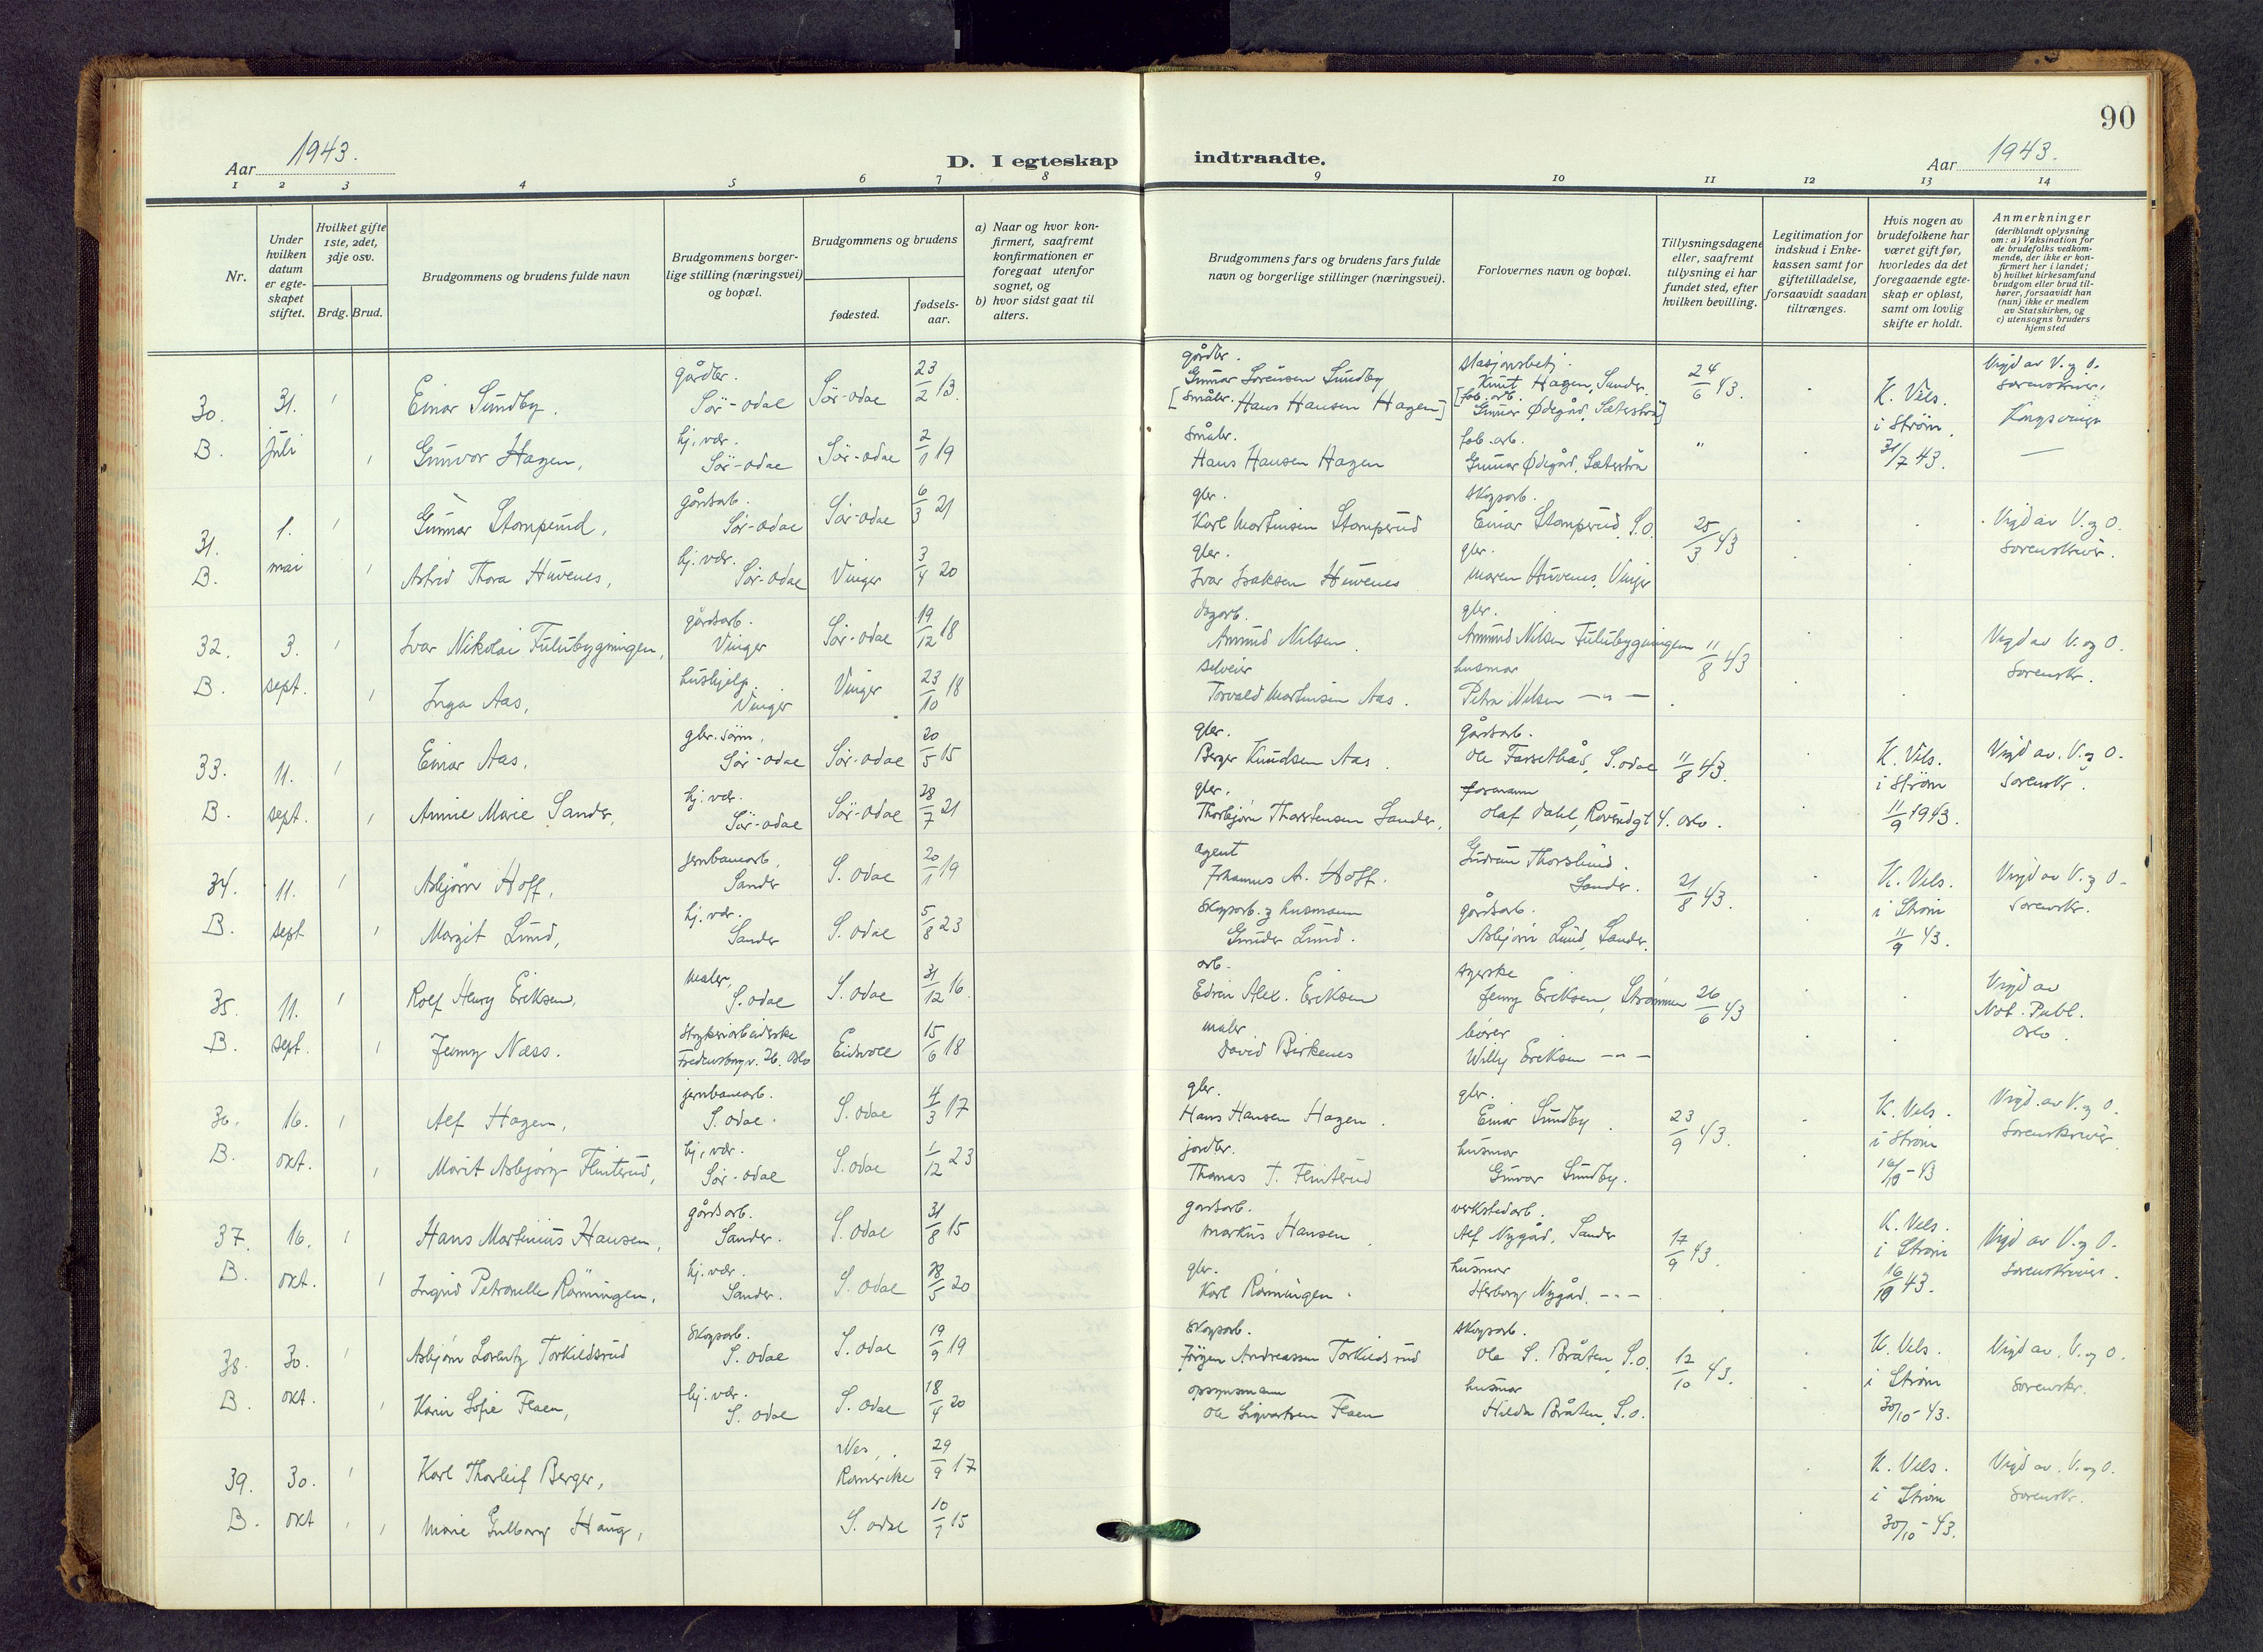 90
Aar 1943.
D. I egteskap indtraadte.
Aar 1943.
1 2 3 4 5 6 7 8 9 10 11 12 13 14
Nr.
Under hvilken datum er egteskapet stiftet.
Hvilket gifte 1ste, 2det, 3dje osv.
Brdg. Brud.
Brudgommens og brudens fulde navn
Brudgommens borgerlige stilling (næringsvei) og bopæl.
Brudgommens og brudens
fødested.
fødselsaar.
a) Naar og hvor konfirmert, saafremt konfirmationen er foregaat utenfor sognet, og
b) hvor sidst gaat til alters.
Brudgommens fars og brudens fars fulde navn og borgerlige stillinger (næringsvei).
Forlovernes navn og bopæl.
Tillysningsdagene eller, saafremt tillysning ei har fundet sted, efter hvilken bevilling.
Legitimation for indskud i Enkekassen samt for giftetilladelse, forsaavidt saadan tiltrænges.
Hvis nogen av brudefolkene har været gift før, hvorledes da det foregaaende egteskap er opløst, samt om lovlig skifte er holdt.
Anmerkninger (deriblandt oplysning om: a) Vaksination for de brudefolks vedkommende, der ikke er konfirmert her i landet; b) hvilket kirkesamfund brudgom eller brud tilhører, forsaavidt han (hun) ikke er medlem av Statskirken, og c) utensogns bruders hjemsted
30. 31. 1 Einar Sundby. gårdbr. Sør-odal Sør-odal 23/2 13. gårdbr. Gunnar Sørensen Sundby [småbr. Hans Hansen Hagen] stasjonsbetj. Knut Hagen, Sander. [fab. arb. Gunnar Ødegård, Sæterstrå] 24/6 43. K. Vels. i Strøm. 31/7 43. Vigd av V. og O. Sorenskriver. Kongsvinger
B. juli 1 Gunvor Hagen, hj. vær. Sør-odal Sør-odal 2/1 19 småbr. Hans Hansen Hagen fab. arb. Gunnar Ødegård, Sæterstrå " —
31. 1. 1 Gunnar Stomperud, gårdsarb. Sør-odal Sør-odal 6/3 21 gbr. Karl Martinsen Stomperud skogsarb. Einar Stomperud, S.O. 25/3 43 Vigd av V. og O. Sorenskriver.
B. mai 1 Astrid Thora Huvenes, hj. vær. Sør-odal Vinger 3/4 20 gbr. Ivar Isaksen Huvenes gbr. Maren Huvenes, Vinger
32. 3. 1 Ivar Nikolai Fulubygningen, gårdsarb. Vinger Sør-odal 19/12 18 dagarb. Amund Nilsen gbr. Amund Nilsen Fulubygningen 11/8 43 Vigd av V. og O. Sorenskr.
B. sept. 1 Inga Aas, hushjelp. Vinger Vinger 23/10 18 selveier Torvald Martinsen Aas. husmor Petra Nilsen — " —
33. 11. 1 Einar Aas, gbr. sønn, Sør-odal Sør-odal 20/5 15 gbr. Berger Knudsen Aas. gårdsarb. Ole Farsethås, S. odal 11/8 43. K. Vels. i Strøm 11/9 1943. Vigd av. V. og O. Sorenskr.
B. sept. 1 Annie Marie Sander, hj. vær. Sør-odal Sør-odal 28/7 21 gbr. Thorbjørn Thorstensen Sander, formann Olaf Dahl, 4. Oslo.
34. 11. 1 Asbjørn Hoff, jernbanearb. Sander S. odal 20/1 19 agent Johannes A. Hoff. Gudrun Thorslund. Sander. 21/8 43. K. Vels. i Strøm 11/9 43. Vigd av V. og O. Sorenskr.
B. sept 1 Margit Lund, hj. vær. Sander S. odal 5/8 23 skogsarb. og husmann Gunder Lund. gårdsarb. Asbjørn Lund, Sander.
35. 11. 1 Rolf Henry Eriksen, maler, S. odal S. odal 31/12 16. arb. Edvin Alex. Eriksen syerske Jenny Eriksen, Strømmen 26/6 43 Vigd av Not. Publ. Oslo.
B. sept. 1 Jenny Næss. strykeriarbeiderske Fredensborgv. 26. Oslo Eidsvoll 15/6 18 maler David Birkenes Willy Eriksen — " —
36. 16. 1 Alf Hagen, jernbanearb. S. odal. S. odal 4/3 17 gbr. Hans Hansen Hagen. gbr. Einar Sundby. 23/9 43. K. Vels. i Strøm 16/10 - 43 Vigd. av V. og O. Sorenskriver.
B. okt. 1 Marit Asbjørg Flinterud, hj. vær. Sør-odal S. odal 1/12 23 jordbr. Thomas T. Flinterud husmor Gunvor Sundby.
37. 16. 1 Hans Martinius Hansen, gårdsarb. Sander. S. odal 31/8 15 gårdsarb. Markus Hansen verkstedarb. Alf Nygård, Sander 17/9 43. K. Vels. i Strøm 16/10 43. Vigd av V. og O. Sorenskriver.
B. okt. 1 Ingrid Petronelle Rønningen, hj. vær. Sander. S. odal 28/5 20 gbr. Karl Rønningen. husmor Herborg Nygård, — " —
38. 30. 1 Asbjørn Lorentz Torkildsrud skogsarb. S. odal S. odal 19/9 19 skogsarb. Jørgen Andreassen Torkildsrud skogsarb. Ole S. Bråten, S.O. 12/10 43. K. Vels. i Strøm 30/10 - 43. Vigd av. V. og O. Sorenskr.
B. okt. 1 Karin Sofie Flaen, hj. vær. S. odal S. odal 18/4 20 opsynsmann Ole Sigvartsen Flaen husmor Hilda Bråten, S.O.
39. 30. 1 Karl Thorleif Berger, Nes, Romerike 29/9 17 K. Vels. i Strøm 30/10 - 43. Vigd av. V. og O. Sorenskr.
B. okt 1 Marie Gulborg Haug, S. odal 10/7 15